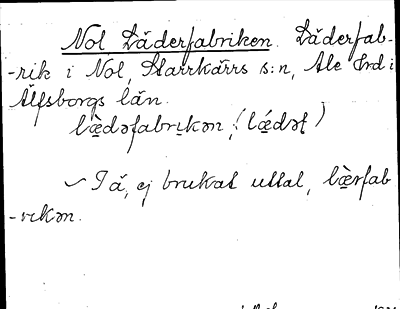 Nol Läderfabriken. Läderfab-
-rik i Nol, Starrkärrs s:n, Ale hrd i
Älfsborgs län.
læ̀dəfabrıkən, (lǽdət)
✓ I ä, ej brukat uttal, læ̀rfab
-rıkən.